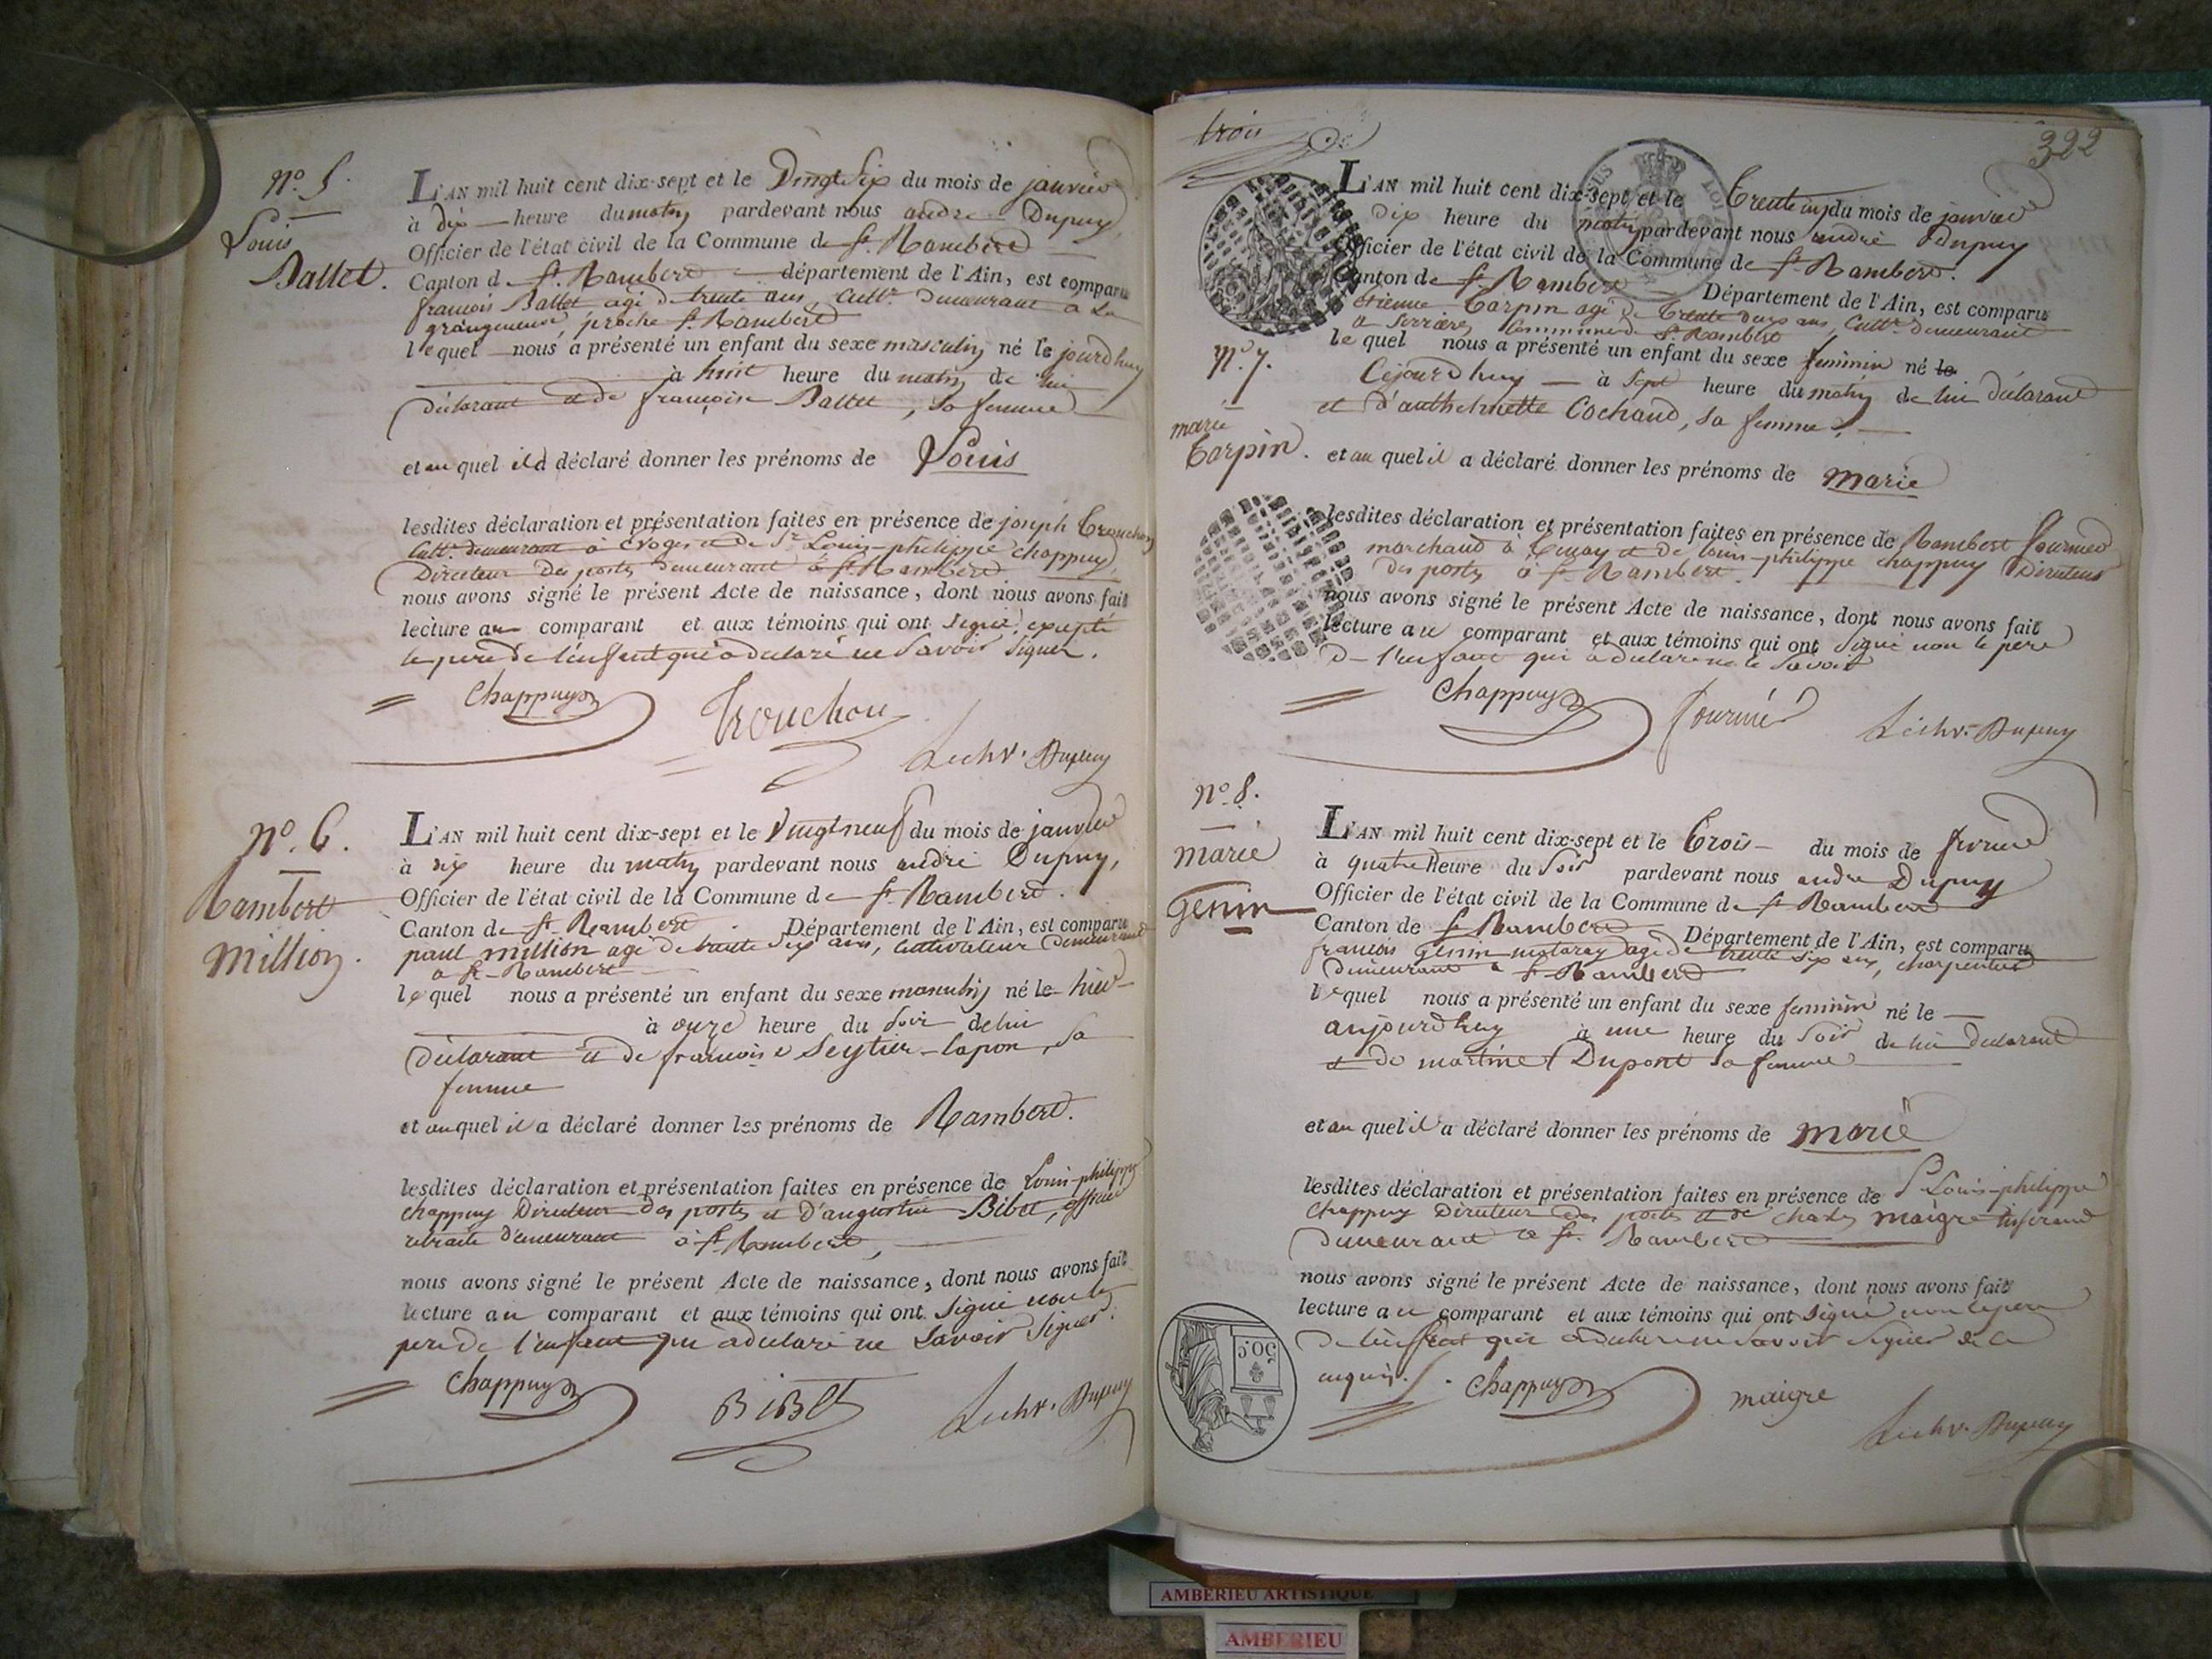 n.° 5.
Louis
Ballet.
L'AN mil huit cent dix-sept et le Vingt Six du mois de janvier
à dix heure du matin pardevant nous andré Dupuy
Officier de l'état civil de la Commune de St Rambert
Canton de St. Rambert département de l'Ain, est comparu
françois Ballet agé de trente ans, Cultr. demeurant à La
proche St. Rambert
lequel nous a présenté un enfant du sexe masculin né le jourd'huy
à huit heure du matin de lui
déclarant et de françoise Ballet, sa femme
et au quel il a déclaré donner les prénoms de Louis
lesdites déclaration et présentation faites en présence de joseph Trouchon
Cultr. demeurant à Evoges et de Sr Louis-philippe chappuy
Directeur des postes demeurant à St Rambert
nous avons signé le présent Acte de naissance, dont nous avons fait
lecture au comparant et aux témoins qui ont signé, excepté
le pere de l'enfant qui a declaré ne savoir signer.
Chappuy
Trouchon
Dupuy
n°. 6.
Rambert
million.
L'AN mil huit cent dix-sept et le Vingt neuf du mois de janvier
à dix heure du matin pardevant nous andré Dupuy,
Officier de l'état civil de la Commune de St Rambert.
Canton de St Rambert Département de l'Ain, est comparu
paul million agé de trente six ans, cultivateur demeurant
à St Rambert
lequel nous a présenté un enfant du sexe masculin né le hier
à onze heure du soir de lui
déclarant et de francoise Seytier-lapon, sa
femme
et au quel il a déclaré donner les prénoms de Rambert.
lesdites déclaration et présentation faites en présence de Louis-philippe
chappuy Directeur des postes et d'augustin Bibet, officier
retraité demeurant à St Rambert,
nous avons signé le présent Acte de naissance, dont nous avons fait
lecture au comparant et aux témoins qui ont signé non le
pere de l'enfant qui a declaré ne savoir signer.
Chappuy
BiBet
Dupuy
trois
322
n.° 7.
marie
Carpin.
L'AN mil huit cent dix-sept et le Trente un du mois de janvier
dix heure du matin pardevant nous andré Dupuy
Officier de l'état civil de la Commune de St Rambert.
Canton de St Rambert Département de l'Ain, est comparu
etienne Carpin agé de trente deux ans, Cultr. demeurant
à Serrières Commune de St. Rambert
lequel nous a présenté un enfant du sexe feminin né le
Cejourd'huy à Sept heure du matin de lui déclarant
et d'anthelmette Cochand, sa femme.
et au quel il a déclaré donner les prénoms de marie
lesdites déclaration et présentation faites en présence de Rambert fournier
marchand à Tenay et de louis-philippe chappuy Directeur
des postes à St Rambert.
nous avons signé le présent Acte de naissance, dont nous avons fait
lecture au comparant et aux témoins qui ont signé non le pere
de l'enfant qui a declaré ne le savoir
Chappuy
fournié
Dupuy
n.° 8.
marie
Genin
L'AN mil huit cent dix-sept et le Trois du mois de fevrier
à quatre heure du Soir pardevant nous andré Dupuy
Officier de l'état civil de la Commune de St Rambert
Canton de St Rambert Département de l'Ain, est comparu
francois Genin agé de trente six ans, charpentier
demeurant à St Rambert
lequel nous a présenté un enfant du sexe feminin né le
aujourd'huy à une heure du Soir de lui declarant
et de martine Dupont sa femme
et au quel il a déclaré donner les prénoms de marie
lesdites déclaration et présentation faites en présence de Sr Louis-philippe
Chappuy Directeur des postes et de charles maigre tisserand
demeurant à St. Rambert
nous avons signé le présent Acte de naissance, dont nous avons fait
lecture au comparant et aux témoins qui ont signé non le pere
de l'enfant qui a declaré ne savoir signer de ce
enquis.
Chappuy
maigre
Dupuy
50 C
AMBERIEU ARTISTIQUE
AMBERIEU